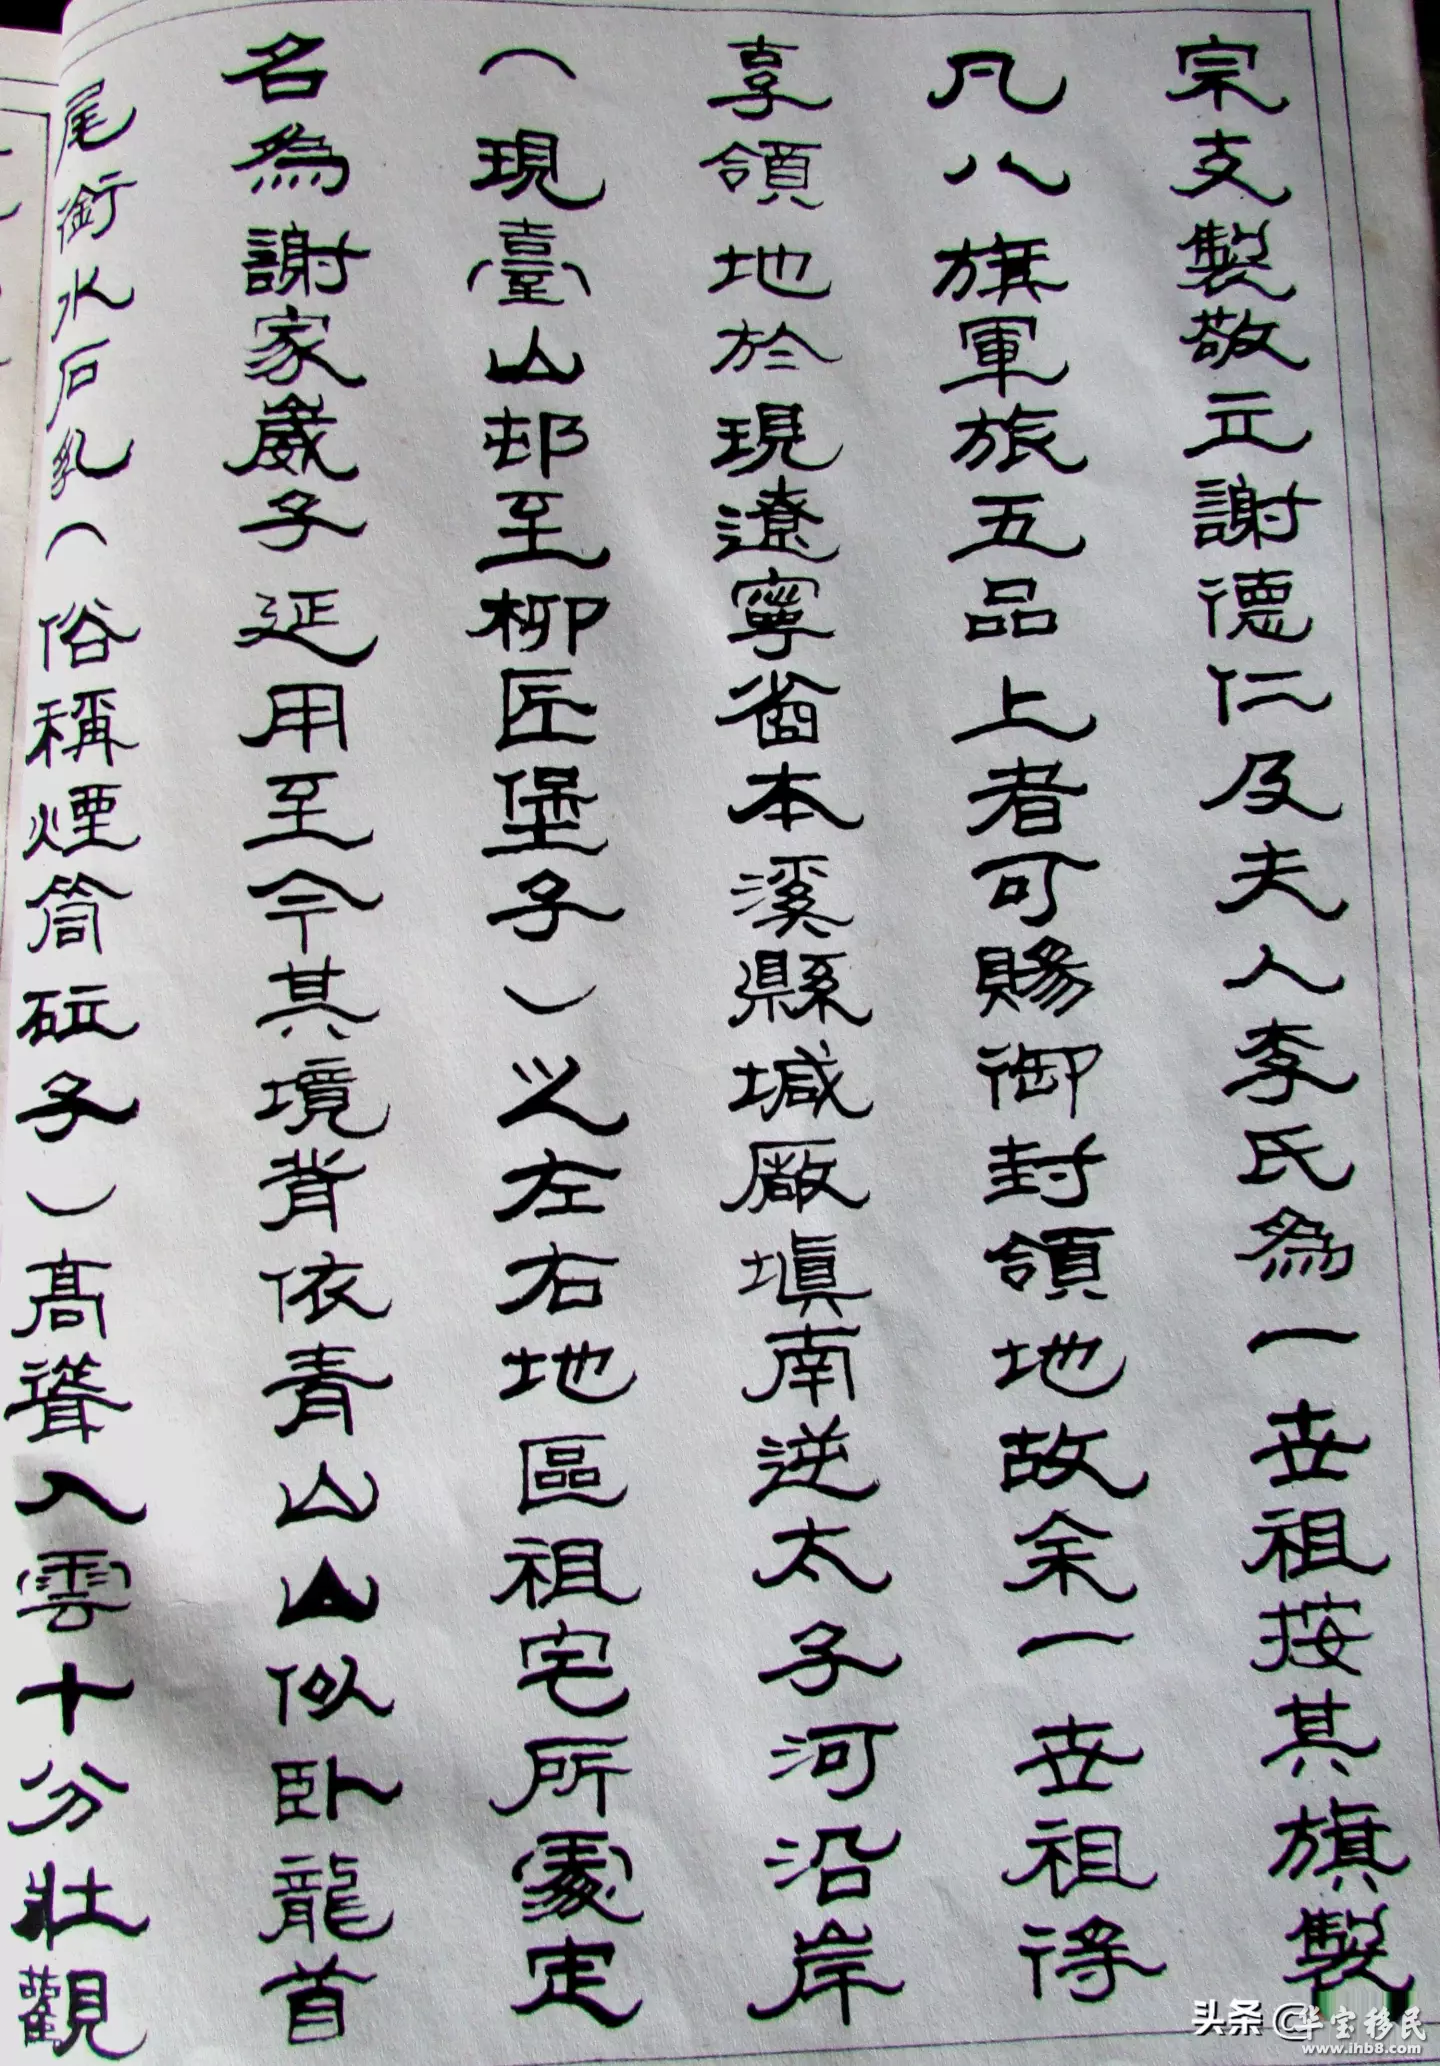 宗支製敬立謝德仁及夫人李氏為一世祖按其旗製
凡八旗軍旅五品上者可賜御封領地故余一世祖得
享領地於現遼寧省本溪縣堿廠填南逆太子河沿岸
（現臺山邨至柳匠堡子）之左右地區祖宅所處定
名為謝家崴子延用至今其境背依青山山似卧龍首
尾銜水石乳（俗稱煙筒砬子）高聳入雲十分壯觀
头条@华宝移民
www.ihb8.com